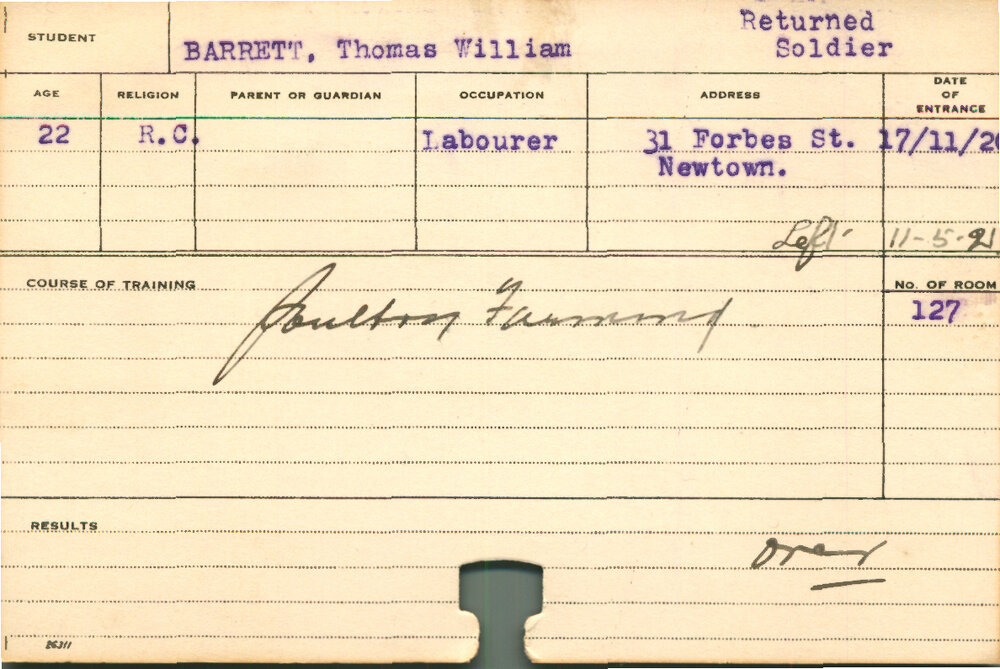 STUDENT
BARRETT, Thomas William
Returned
Soldier
AGE
RELIGION
PARENT OR GUARDIAN
OCCUPATION
ADDRESS
DATE
OF
ENTRANCE
22
R.C.
Labourer
31 Forbes St.
17/11/20
Newtown.
Left 11-5-21
COURSE OF TRAINING
Poultry Farming
No. OF ROOM
127
RESULTS
over
26311